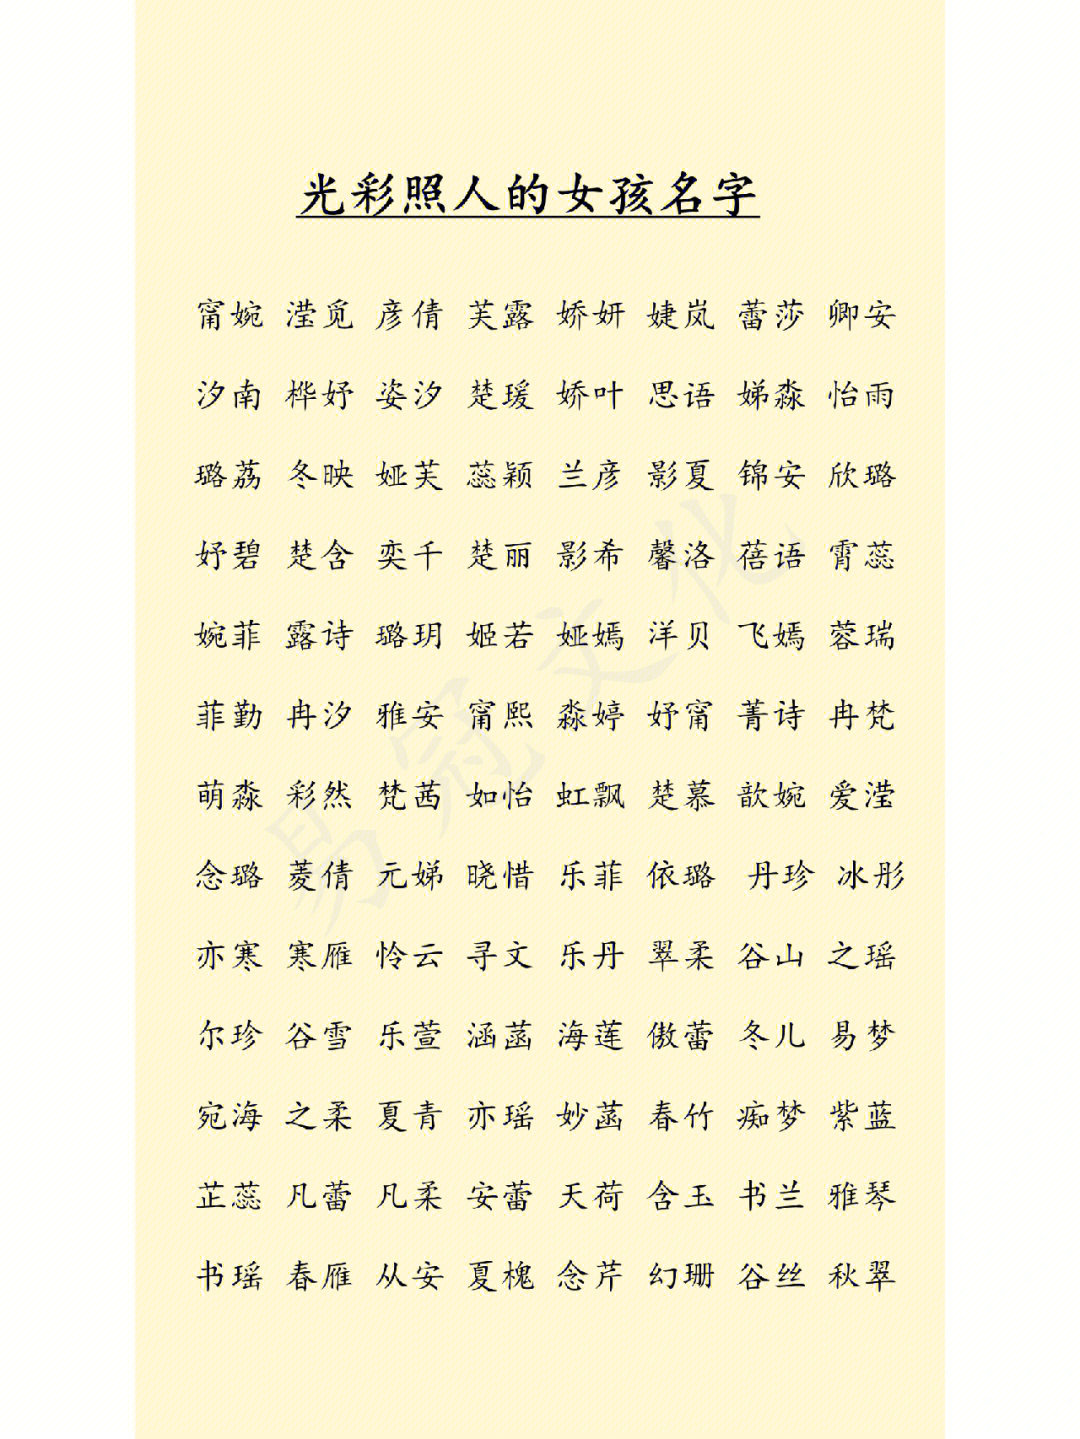 光彩照人的女孩名字
甯婉 滢觅 彦倩 芙露 娇妍 婕岚 蕾莎 卿安
汐南 桦妤 姿汐 楚瑗 娇叶 思语 娣淼 怡雨
璐荔 冬映 娅芙 蕊颖 兰彦 影夏 锦安 欣璐
妤碧 楚含 奕千 楚丽 影希 馨洛 蓓语 霄蕊
婉菲 露诗 璐玥 姬若 娅嫣 洋贝 飞嫣 蓉瑞
菲勤 冉汐 雅安 甯熙 淼婷 妤甯 菁诗 冉梵
萌淼 彩然 梵茜 如怡 虹飘 楚慕 歆婉 爱滢
念璐 菱倩 元娣 晓惜 乐菲 依璐 丹珍 冰彤
亦寒 寒雁 怜云 寻文 乐丹 翠柔 谷山 之瑶
尔珍 谷雪 乐萱 涵菡 海莲 傲蕾 冬儿 易梦
宛海 之柔 夏青 亦瑶 妙菡 春竹 痴梦 紫蓝
芷蕊 凡蕾 凡柔 安蕾 天荷 含玉 书兰 雅琴
书瑶 春雁 从安 夏槐 念芹 幻珊 谷丝 秋翠
易冠文化